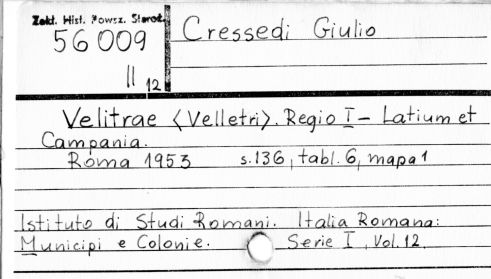 Zakł. Hist. Powsz. Staroż.
56 009
II 12
Cressedi Giulio
Velitrae <Velletri>. Regio I - Latium et
Campania.
Roma 1953 s.136, tabl.6, mapa 1
Istituto di Studi Romani. Italia Romana:
Municipi e Colonie. Serie I, Vol.12.